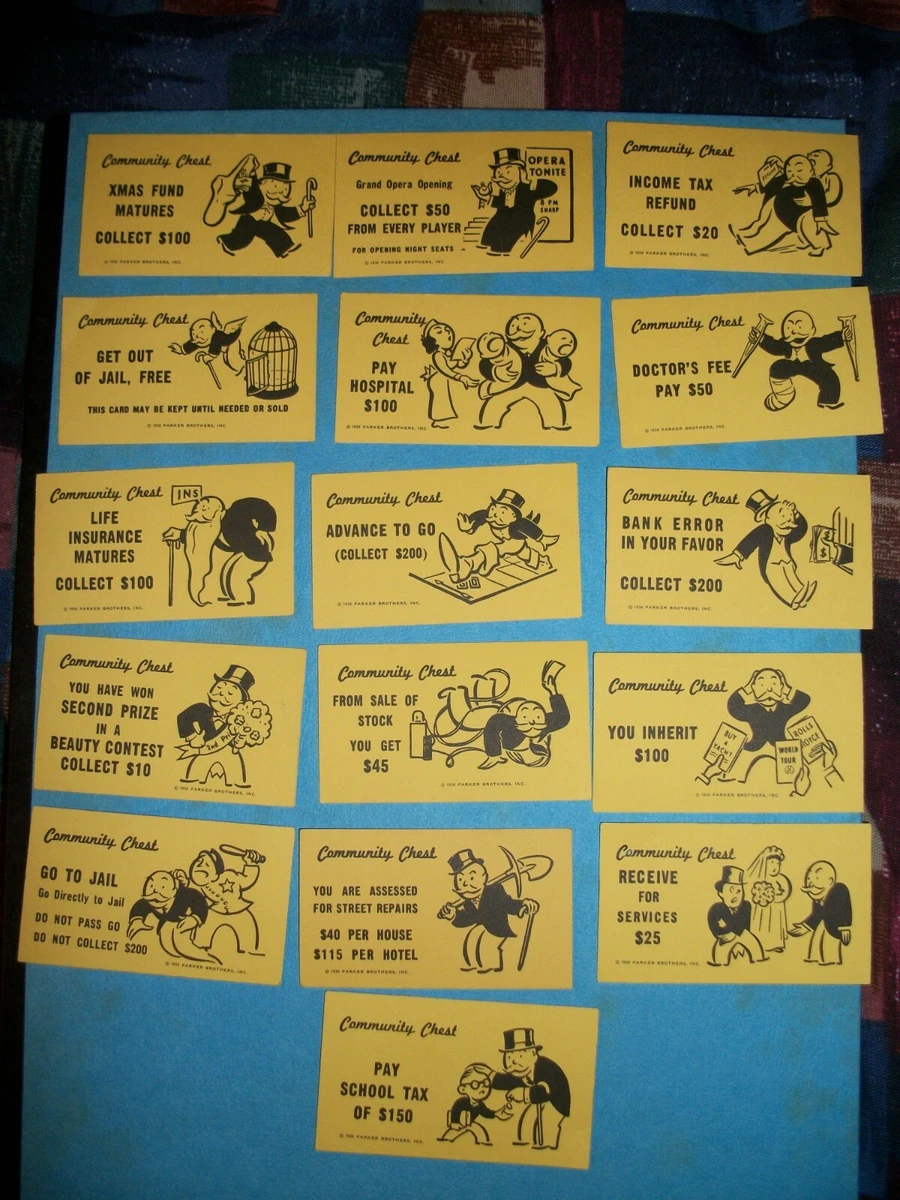 Community Chest
XMAS FUND
MATURES
COLLECT $100
© 1936 PARKER BROTHERS, INC.
Community Chest
Grand Opera Opening
COLLECT $50
FROM EVERY PLAYER
FOR OPENING NIGHT SEATS
© 1936 PARKER BROTHERS, INC.
OPERA
TONITE
8 PM
SHARP
Community Chest
INCOME TAX
REFUND
COLLECT $20
© 1936 PARKER BROTHERS, INC.
Community Chest
GET OUT
OF JAIL, FREE
THIS CARD MAY BE KEPT UNTIL NEEDED OR SOLD
© 1936 PARKER BROTHERS, INC.
Community
Chest
PAY
HOSPITAL
$100
© 1936 PARKER BROTHERS, INC.
Community Chest
DOCTOR'S FEE
PAY $50
© 1936 PARKER BROTHERS, INC.
Community Chest
INS
LIFE
INSURANCE
MATURES
COLLECT $100
© 1936 PARKER BROTHERS, INC.
Community Chest
ADVANCE TO GO
(COLLECT $200)
© 1936 PARKER BROTHERS, INC.
Community Chest
BANK ERROR
IN YOUR FAVOR
COLLECT $200
© 1936 PARKER BROTHERS, INC.
$
Community Chest
YOU HAVE WON
SECOND PRIZE
IN A
BEAUTY CONTEST
COLLECT $10
2nd Pri
© 1936 PARKER BROTHERS, INC.
Community Chest
FROM SALE OF
STOCK
YOU GET
$45
© 1936 PARKER BROTHERS, INC.
Community Chest
YOU INHERIT
$100
BUY
A
YACHT
WORLD
TOUR
ROLLS
ROYCE
© 1936 PARKER BROTHERS, INC.
Community Chest
GO TO JAIL
Go Directly to Jail
DO NOT PASS GO
DO NOT COLLECT $200
© 1936 PARKER BROTHERS, INC.
Community Chest
YOU ARE ASSESSED
FOR STREET REPAIRS
$40 PER HOUSE
$115 PER HOTEL
© 1936 PARKER BROTHERS, INC.
Community Chest
RECEIVE
FOR
SERVICES
$25
© 1936 PARKER BROTHERS, INC.
Community Chest
PAY
SCHOOL TAX
OF $150
© 1936 PARKER BROTHERS, INC.